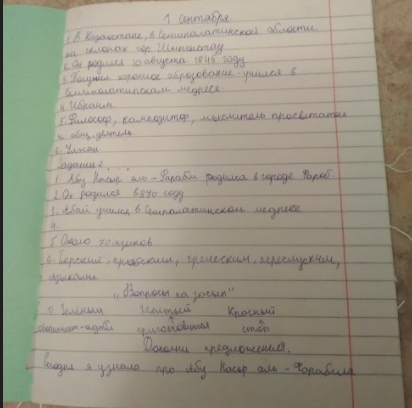 1 Сентября
1. В Казахстане, в Семипалатинской области
на склонах гор
2. Он родился 10 августа 1845 году
3. Получил хорошое образование учился в
Семипалатинском медресе
4. Ибрагим
5. Философ, композитор, мыслитель просветател
и общ. деятель
6.
задание 2
1. Абу Насыр аль-Фараби родился в городе Фароб
2. Он родился в 870 году
3. Абай учился в Семипалатинском медресе
4.
5. Около 70 языков
6. арабским, греческим,
языками
„Вопросы на засып"
Зелёный Жолтый Красный
приготовится стоп
Дополни предложения.
Сегодня я узнала про Абу Насыр аль-Фарабила